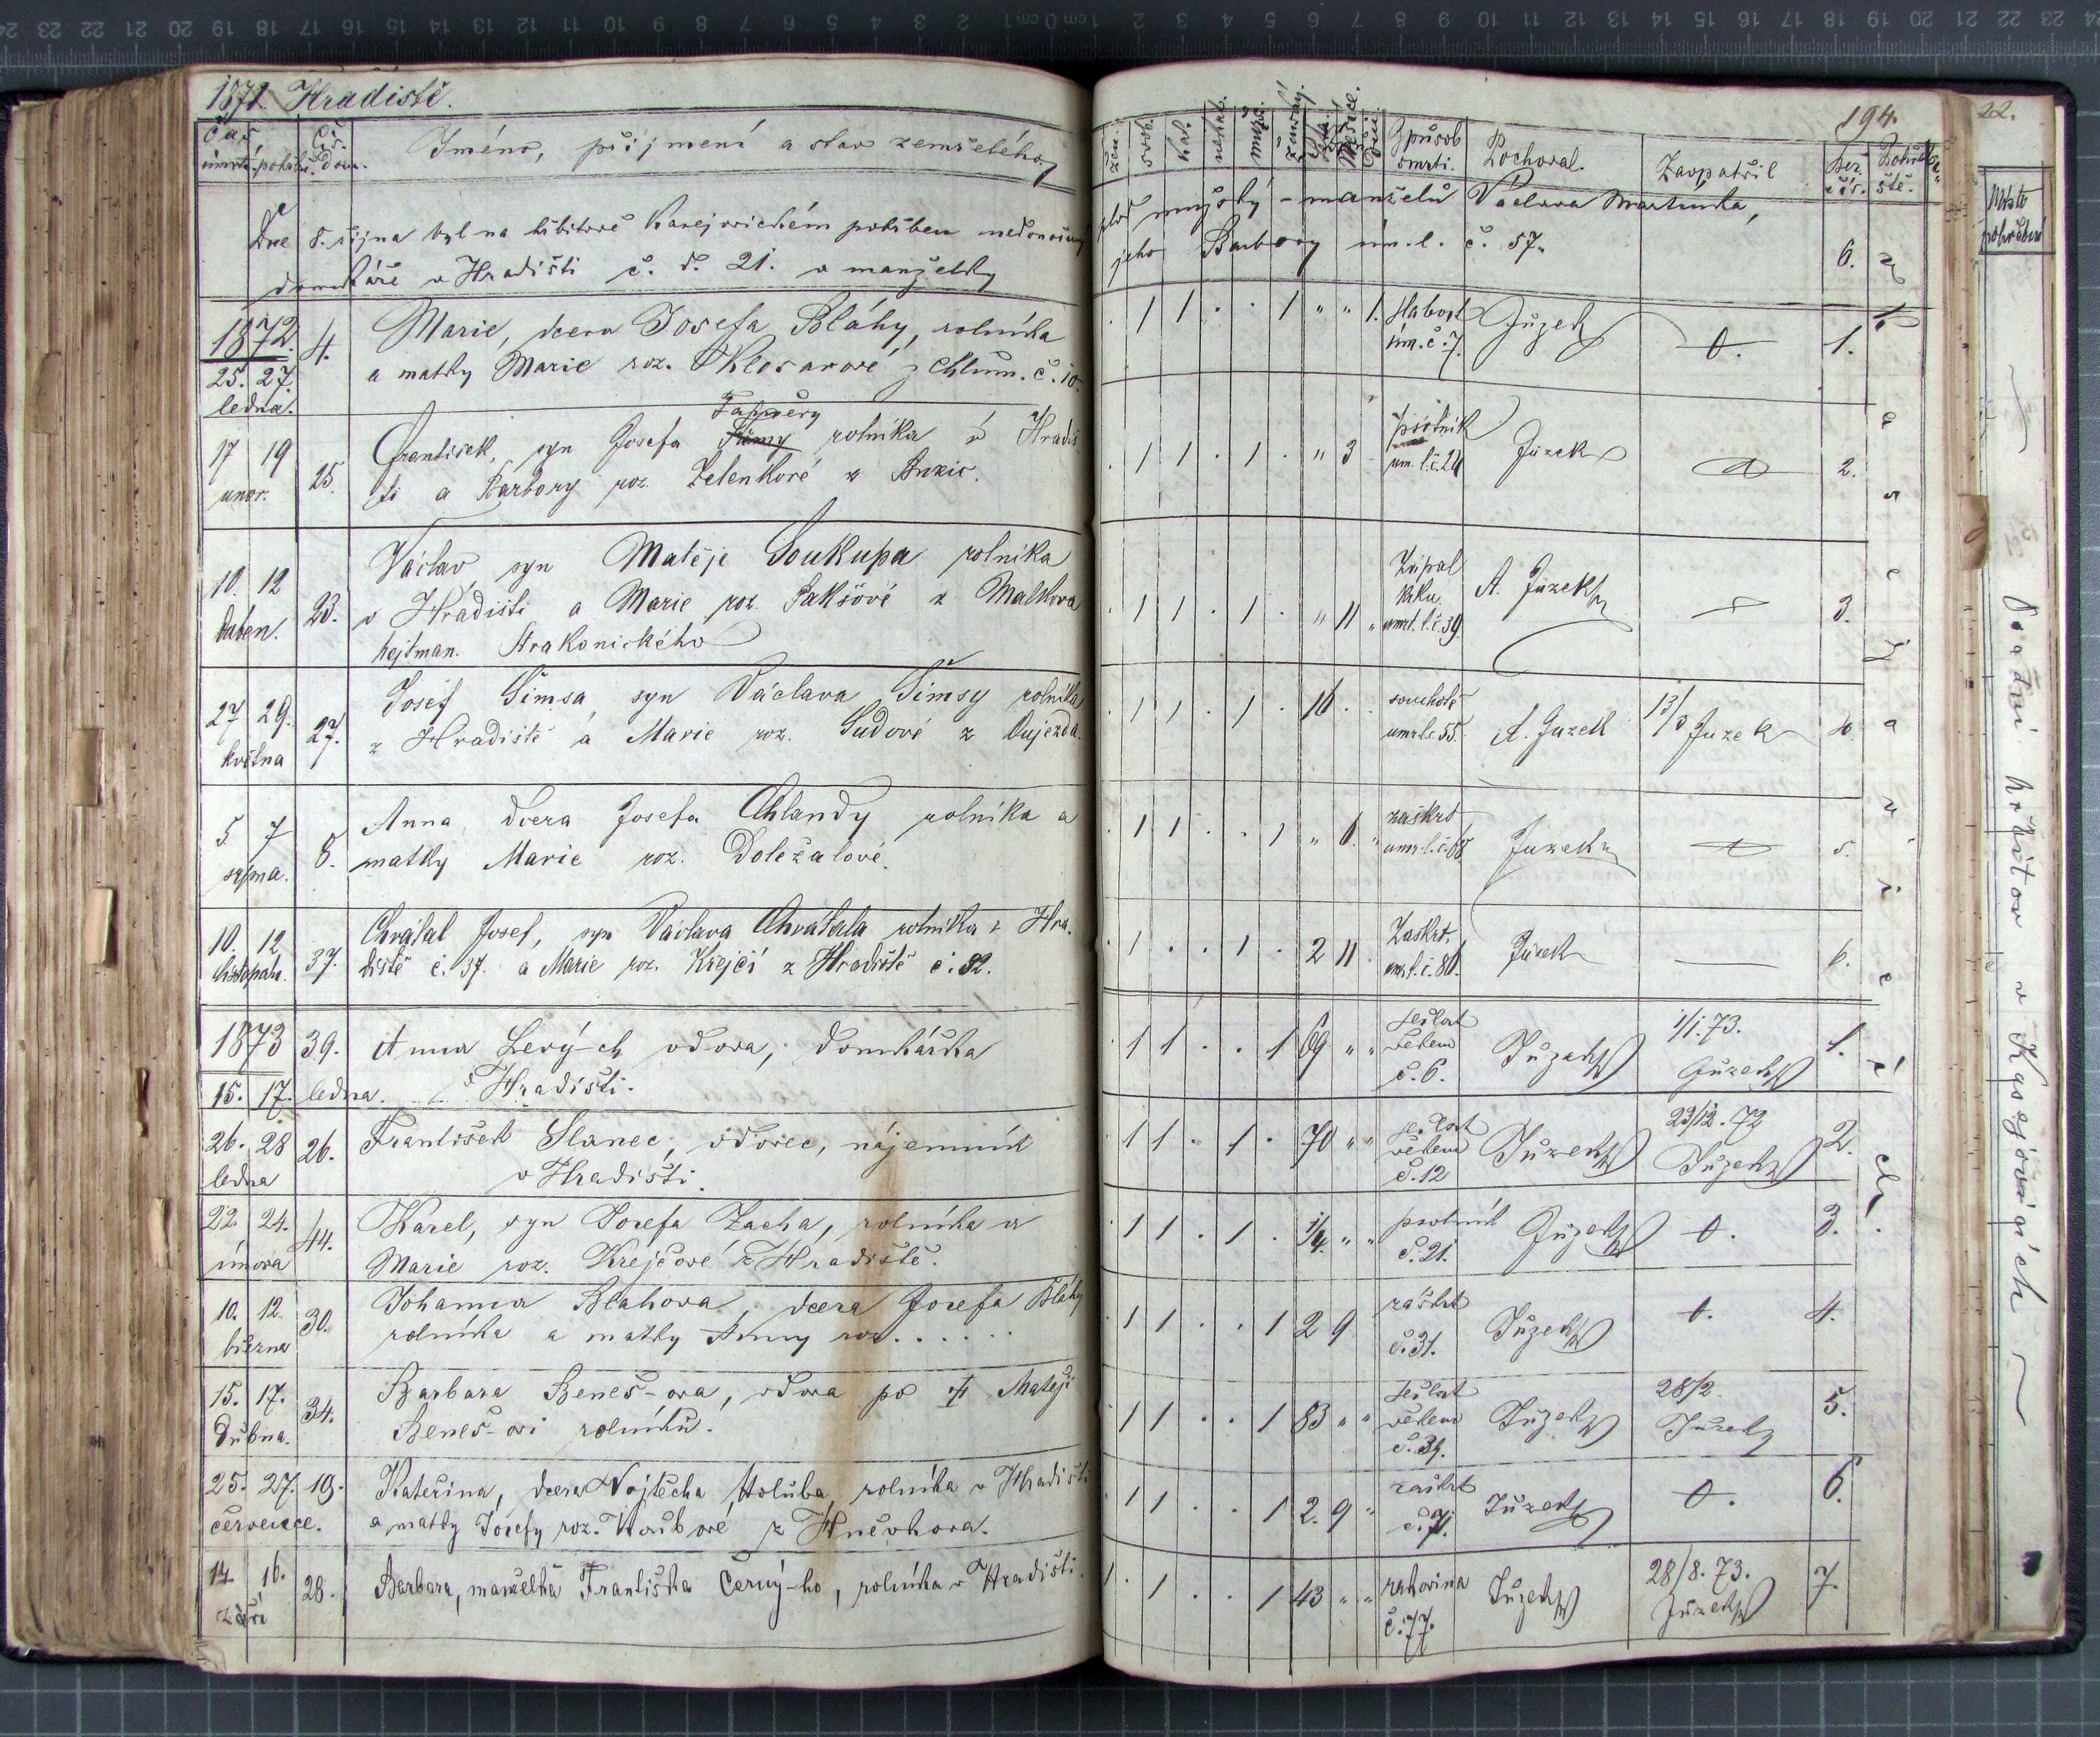 1871. Hradiště.
194.
Čas
úmrtí. pohřbu.
Čís. dom.
Jméno, příjmení a stav zemřelého
žen. svob. kat. nekat. mužs. ženský. Léta. Měsíce. Dni.
Způsob smrti.
Pochoval.
Zaopatřil
Běž. čís.
Pohřbiště.
Dne 8. října byl na hřbitově Kasejovickém pohřben nedonošený plod mužský - manželů Václava Martínka,
domkáře v Hradišti č. d. 21. a manželky jeho Barbory úm. l. č. 57. 6.
1872
25. 27. ledna.
4.
Marie, dcera Josefa Bláhy, rolníka
a matky Marie roz. z Chlum. č. 10.
1 1 . . 1 " " 1.
úm. č. 7.
Jůzek
0.
1.
17 19 unor.
25.
František, syn Josefa rolníka v Hradiš
ti a Barbory roz. Zelenkové z
1 1 . 1 . " 3
psotník
um. l. č. 24
Jůzek
2.
10. 12 duben.
23.
Václav syn Matěje Soukupa rolníka
v Hradišti a Marie roz. z Malkova
hejtman. Strakonického
1 1 . 1 . " 11 "
Zápal
umrt. l. č. 39.
A. Jůzek
3.
27 29. května
27.
Josef Šimsa, syn Václava Šimsy rolníka
z Hradiště a Marie roz. Sudové z Oujezda.
1 1 . 1 . 16 . .
souchotě
umr. l. č. 55.
A. Juzek
Juzek
4.
5 7 října.
8.
Anna, dcera Josefa Chlandy rolníka a
matky Marie roz. Doležalové.
1 1 . . 1 " 6. "
zaškrt
umr. l. č. 68
Juzek
5.
10. 12 listopadu.
37.
Chvátal Josef, syn Václava Chvátala rolníka z Hra.
diště č. 37. a Marie roz. Krejčí z Hradiště č. 32.
1 . . 1 . 2 11
Zaskrt.
Jůzek
6.
1873
15. 17. ledna.
39.
Anna Levý-ch vdova, domkářka
v Hradišti.
1 1 . . 1 69 " "
sešlost
věkem
č. 6.
Jůzek
1/1. 73.
Jůzek
1.
26. 28 ledna
26.
František Slanec, vdovec, nájemník
v Hradišti.
1 1 . 1 . 70 " "
sešlost
věkem
č. 12
Jůzek
23/12. 72
Jůzek
2.
22. 24. února
44.
Karel, syn Josefa Zacha, rolníka a
Marie roz. Krejčové z Hradiště.
1 1 . 1 . 1/4. " "
psotník
č. 21.
Jůzek
0.
3.
10. 12. března
30.
Johanna Bláhova, dcera Josefa Bláhy
rolníka a matky Anny roz. . . . . .
1 1 . . 1 2 9
zaškrt
č. 31.
Jůzek
0.
4.
15. 17. dubna.
34.
Barbara Beneš-ova, vdova po † Matěji
Beneš-ovi rolníku.
1 1 . . 1 83 " "
sešlost
věkem
č. 34.
Jůzek
28/2.
Jůzek
5.
25. 27. července.
19.
Kateřina, dcera Vojtěcha Holuba, rolníka v Hradišti
a matky Josefy roz. z Hněvkova.
1 1 . . 1 2. 9 "
zaškrt
Jůzek
0.
6.
14 16. září
28.
Barbara, manželka Františka Černý-ho, rolníka v Hradišti.
1. 1 . . 1 43 " "
rakovina
č. 77.
Jůzek
28/8. 73.
Jůzek
7.
na Kasejovicích.
22.
Místo
pohřební
hřbitov v Kasejovicích